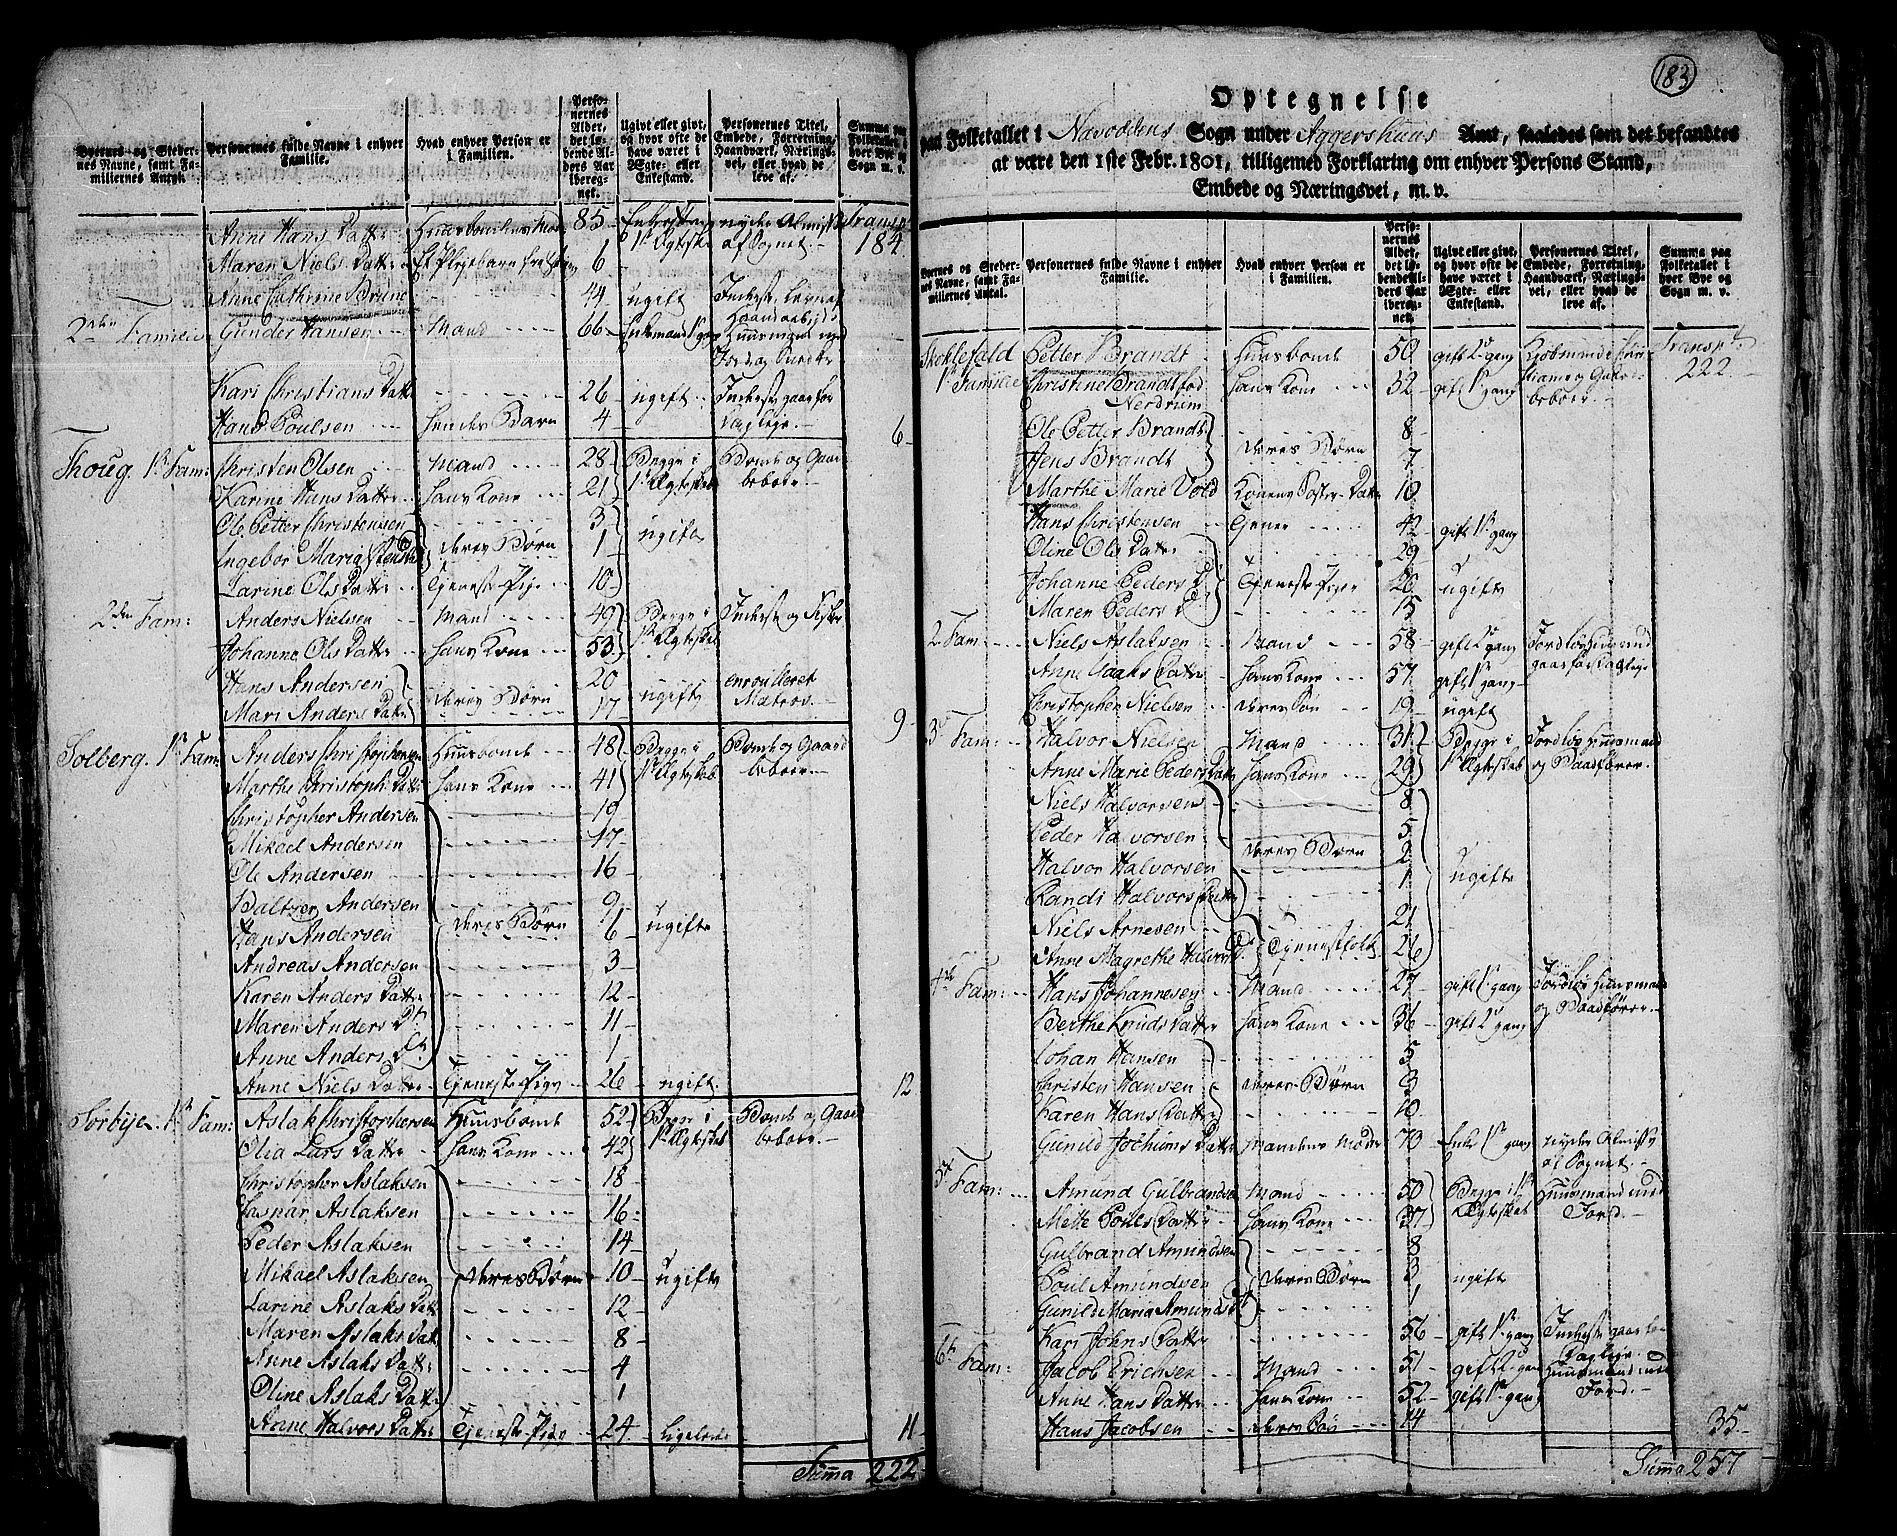 Byernes og Steder-
nes Navne, samt Fa-
miliernes Antal.
Personernes fulde Navne i enhver
Familie.
Hvad enhver Person er
i Familien.
Perso-
nernes
Alder,
det lø-
bende Al-
ders Aar
iberegnet.
Ugivt eller givt,
og hvor ofte de
have været i
Ægte- eller
Enkestand.
Personernes Titel,
Embede, Forretning,
Haandværk, Nærings-
vei, eller hvad de
leve af.
Summa paa
Folketallet i
hver Bye og
Sogn m. v.
Anne Hans Datter 85 nyder Almisse Transp
1st Ægtesk af Sognet 184
Maren Niels Datter 6
Anne Cathrine Brune 44 ugift
2den Familie Gunder Hansen Mand 66
Kari Christians Datt 26 ugift
Hans Poulsen hendes Barn 4 6
Thoug. 1st Fam: Christen Olsen Mand 28 Begge i Bonde og Gaard
Karine Hans Datter hans Kone 21 1st Ægteskab beboer
Ole Petter Christensen 3
Ingebor Maria deres Børn 1 ugifte
Larine Ols Datter Tjeneste Pige 10
2den Fam: Anders Nielsen Mand 49 Begge i Inderst og Fisker
Johanne Ols Datter hans Kone 53 1st Ægteskab
Hans Andersen 20 enroulleret
Mari Anders Datt deres Børn 17 ugifte Matros 9
Solberg. 1st Fam: Anders Christophersen Huusbonde 48 Begge i Bonde og Gaard
Marthe Christoph: Datter hans Kone 41 1st Ægteskab beboer
Christopher Andersen 19
Mikael Andersen 17
Ole Andersen 16
Baltzer Andersen 9
Hans Andersen deres Børn 6 ugifte
Andreas Andersen 3
Karen Anders Datter 12
Maren Anders D: 11
Anne Anders D: 1
Anne Niels Datter Tjeneste Pige 26 ugift 12
Sørbye. 1st Fam: Aslak Christophersen Huusbonde 52 Begge i Bonde og Gaard
Olia Lars Datter hans Kone 42 1st Ægteskab beboer
Christopher Aslaksen 18
Casnar Aslaksen 16
Peder Aslaksen 14
Mikael Aslaksen deres Børn 10 ugifte
Larine Aslaks Datt 12
Maren Aslaks Datt 8
Anne Aslaks Datt 4
Oline Aslaks Datt 1
Anne Halvors Datter Tjeneste Pige 24 Ligeledes 11
Summa 222
183
Optegnelse
paa Folketallet i Næsoddens Sogn under Aggershuus Amt, saaledes som det befandtes
at være den 1ste Febr. 1801, tilligemed Forklaring om enhver Persons Stand,
Embede og Næringsvei, m. v.
Byernes og Steder-
nes Navne, samt Fa-
miliernes Antal.
Personernes fulde Navne i enhver
Familie.
Hvad enhver Person er
i Familien.
Perso-
nernes
Alder,
det lø-
bende Al-
ders Aar
iberegnet.
Ugivt eller givt,
og hvor ofte de
have været i
Ægte- eller
Enkestand.
Personernes Titel,
Embede, Forretning,
Haandværk, Nærings-
vei, eller hvad de
leve af.
Summa paa
Folketallet i
hver Bye og
Sogn m. v.
Petter Brandt Huusbonde 50 gift 2 gang Transpt.
1st Familie Christine Brandt fød hans Kone 32 gift 1st gang 222
Nerdrum beboer
Ole Petter Brandt 8
Jens Brandt deres Børn 7
Marthe Marie Vold Konens Søster Datter 10
Hans Christensen Tjener 42 gift 1st gang
Oline Ols Datter 29
Johanne Peders D Tjeneste Piger 20 ugifte
Maren Peders D: 15
2 Fam: Niels Aslaksen Mand 58 gift 2 gang Jordløs Huusmand
Anne Isaaks Datter hans Kone 57 gift 1st gang
Christopher Nielsen deres Søn 19 ugift
3de Fam: Halvor Nielsen Mand 31 Begge i Jordløs Huusmand
Anne Marie Peders Datt hans Kone 29 1st Ægteskab og Baadfører
Niels Halvorsen 8
Peder Halvorsen 5
Halvor Halvorsen deres Børn 2
Randi Halvors Datter 1 ugifte
Niels Arnesen 21
Anne Magrethe Halvors D: Tjenestefolk 26
4de Fam: Hans Johannesen Mand 27 gift 1st gang Jordløs Huusmand
Berthe Knuds Datter hans Kone 36 gift 2 gang og Baadfører
Johan Hansen 5
Christen Hansen deres Børn 3
Karen Hans Datter 10
Gunild Jochums Datter Mandens Moder 70 Enke 1st gang nyder Almisse
af Sognet
5te Fam: Amund Gulbrandsen Mand 50 Begge i 1st Huusmand med
Mette Pouls Datter hans Kone 37 Ægteskab Jord
Gulbrand Amundsen 8
Poul Amundsen deres Børn 3 ugift
Gunild Maria Amunds D 1
Kari Johns Datter 56 gift 1st gang
6te Fam: Jacob Erichsen Mand 51 gift 2 gang Huusmand med
Anne Hans Datter hans Kone 52 gift 1st gang Jord
Hans Jacobsen deres Søn 14 35
Summa 257